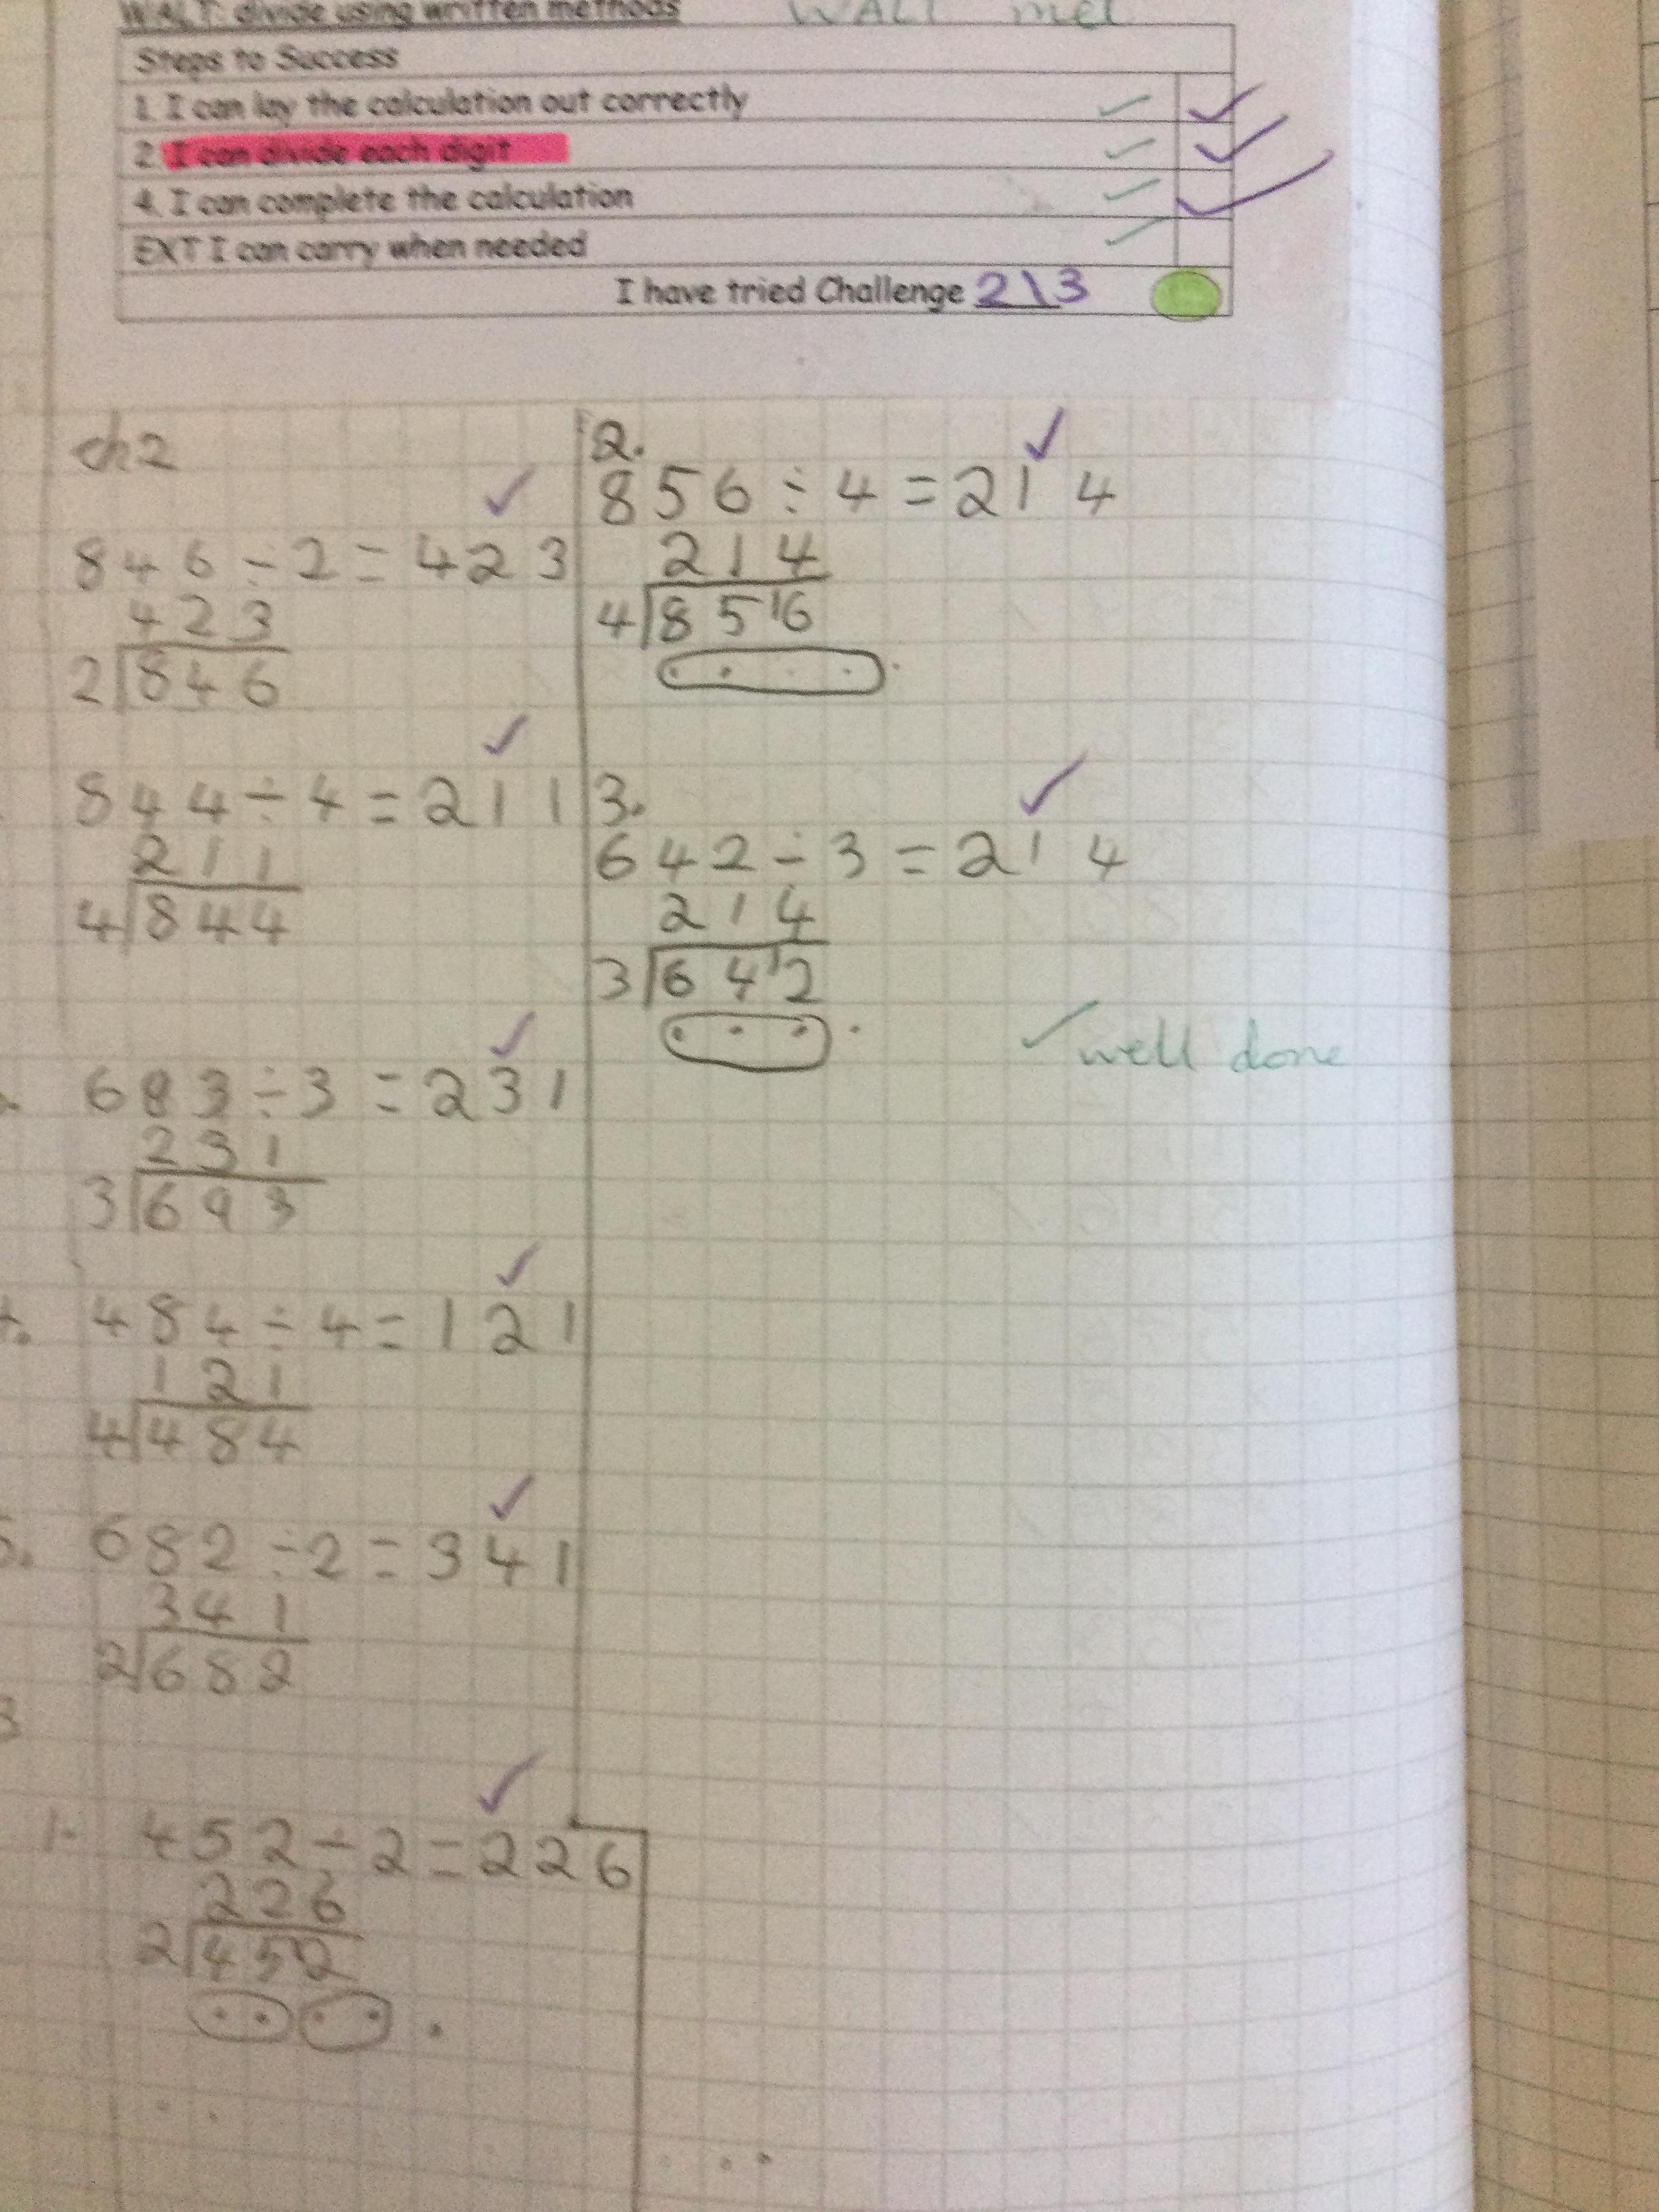 WALT: divide using written methods WALT met
Steps to Success
1. I can lay the calculation out correctly
2. I can divide each digit
4. I can complete the calculation
EXT I can carry when needed
I have tried Challenge 2\3
ch2
846 ÷ 2 = 423
423
2 846
844 ÷ 4 = 211
211
4 844
683 ÷ 3 = 231
231
3 693
4. 484 ÷ 4 = 121
121
4 484
5. 682 ÷ 2 = 341
341
2 682
3
1. 452 ÷ 2 = 226
226
2 4512
2.
856 ÷ 4 = 214
214
4 8516
3.
642 ÷ 3 = 214
214
3 6412
well done